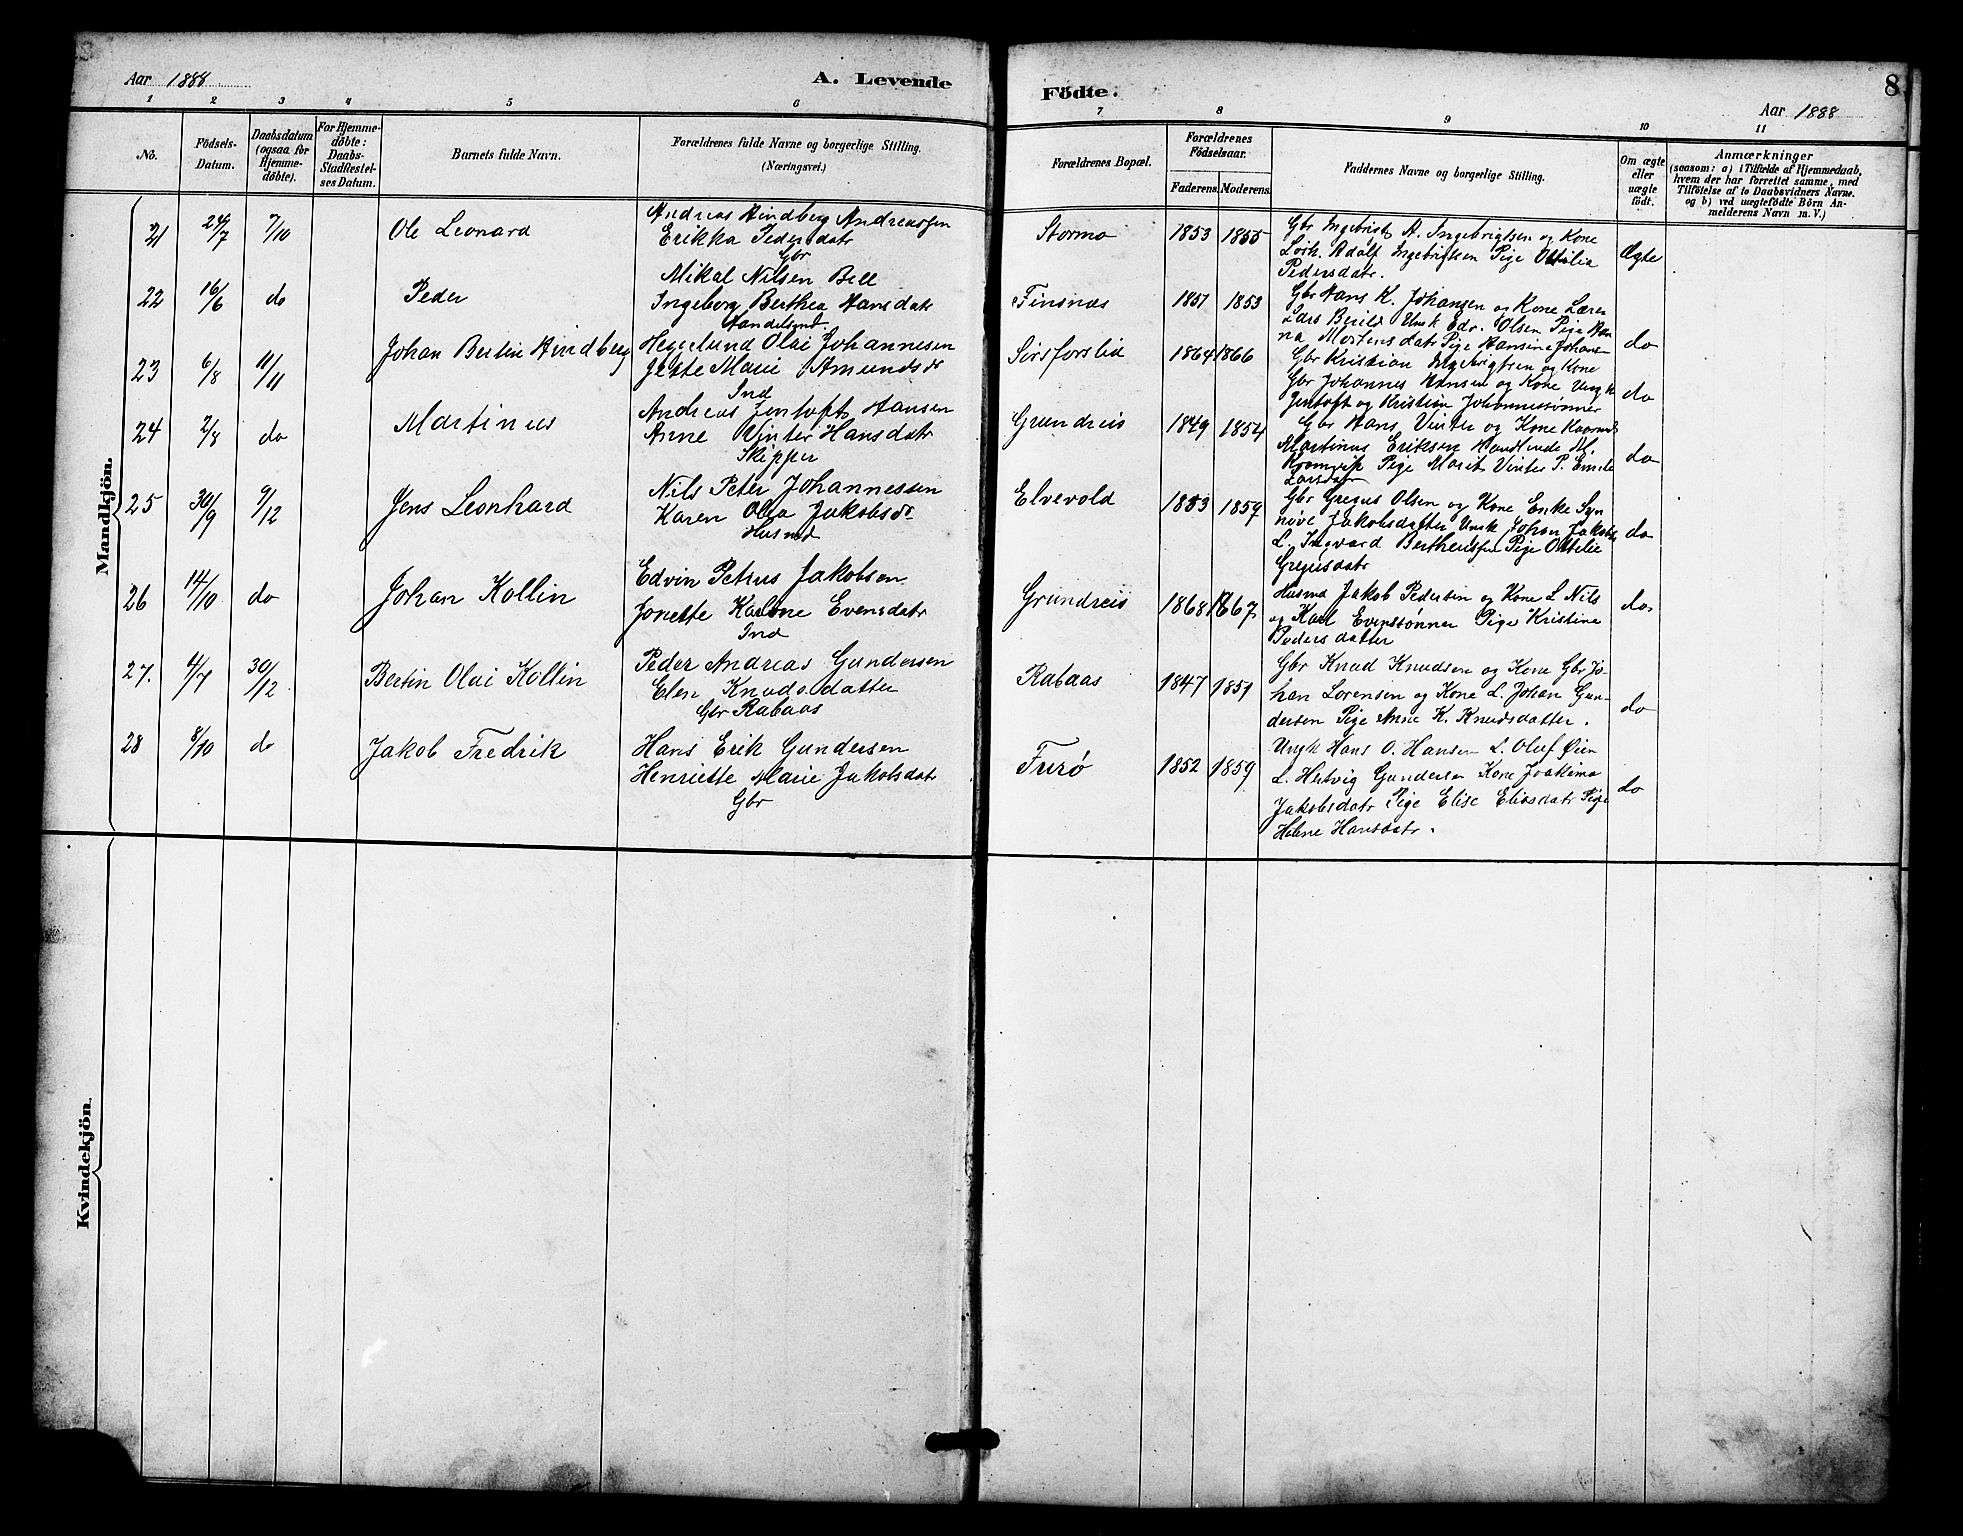 Aar 1888
A. Levende
Födte.
8
Aar 1888
1 2 3 4 5 6 7 8 9 10 11
No.
Födsels-
Datum.
Daabsdatum
(ogsaa for
Hjemme-
døbte).
For Hjemme-
døbte:
Daabs-
Stadfæstel-
ses Datum.
Barnets fulde Navn.
Forældrenes fulde Navne og borgerlige Stilling.
(Næringsvei.)
Forældrenes Bopæl.
Forældrenes
Födselsaar.
Faderens. Moderens.
Faddernes Navne og borgerlige Stilling.
Om ægte
eller
uægte
födt.
Anmærkninger
(saasom: a) i Tilfælde af Hjemmedaab,
hvem der har forrettet samme, med
Tilföielse af to Daabsvidners Navne.
og b) ved uegtefödte Börn An-
melderens Navn m. V.)
Mandkjön.
21 24/7 7/10 Ole Leonard
Andreas Hindberg Andreassen
Erikka Pedersdatr
Gbr
Stormo 1853 1855
Gbr Ingebrigt A. Ingebrigtsen og Kone
Losh. Adolf Ingebrigtsen Pige Ottilia
Pedersdatr.
Ægte
22 16/6 do Peder
Mikal Nilsen Bell
Ingeborg Berthea Hansdatr
Handelsmd
Finsnæs 1851 1853
Gbr Hans K. Johansen og Kone Lærer
Lars Berild Ungk Edv. Olsen Pige Han
na Mortensdatr Pige Hansine Johans
do
23 6/8 11/11 Johan Bertin Hindberg
Hegelund Olai Johannesen
Jette Marie Amundsdr
Ind
Sørsforslid 1864 1866
Gbr Kristian Ingebrigtsen og Kone
Gbr Johannes Hansen og Kone Ungk
Jentoft og Kristian Johannessønner
do
24 2/8 do Martinus
Andreas Jentoft Hansen
Anne Vinter Hansdatr
Skipper
Grundreis 1849 1854
Gbr Hans Vinter og Kone
Martinus Eriksen Handlende M.
Pige Marit Vinter P. Emele
Larsdatr
do
25 30/9 9/12 Jens Leonhard
Nils Peter Johannessen
Karen Olea Jakobsdr
Husmd
Elvevold 1853 1859
Gbr Gregus Olsen og Kone Enke Syn
növe Jakobsdatter Ungk Johan Jakobs
L. Ingvard Bertheusen Pige Ottelie
Gregusdatr
do
26 14/10 do Johan Kollin
Edvin Petrus Jakobsen
Jonette Karline Evensdatr
Ind
Grundreis 1868 1867
Husmd Jakob Pedersen og Kone L Nils
og Karl Evensønner Pige Kristine
Pedersdatter
do
27. 4/7 30/12 Bertin Olai Kollin
Peder Andreas Gundersen
Elen Knudsdatter
Gbr Rabaas
Rabaas 1847 1851
Gbr Knud Knudsen og Kone Gbr Jo-
han Lorensen og Kone L. Johan Gun-
dersen Pige Anne K. Knudsdatter.
do
28 8/10 do Jakob Fredrik
Hans Erik Gundersen
Henriette Marie Jakobsdatr
Gbr
Furø 1852 1859
Ungk Hans O. Hansen L. Oluf Øien
L. Hertvig Gundersen Kone Joakima
Jakobsdatr Pige Elise Eliasdatr Pige
Helene Hansdatr.
do
Kvindekjön.